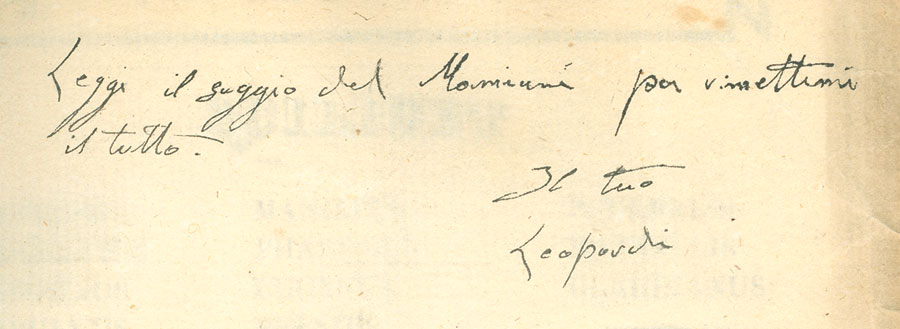 Leggi il saggio del Mamiani per rimettermi
il tutto.
Il tuo
Leopardi